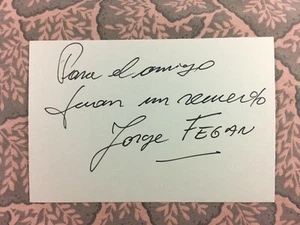 Para el amigo
Juan un recuerdo
Jorge FEGAN